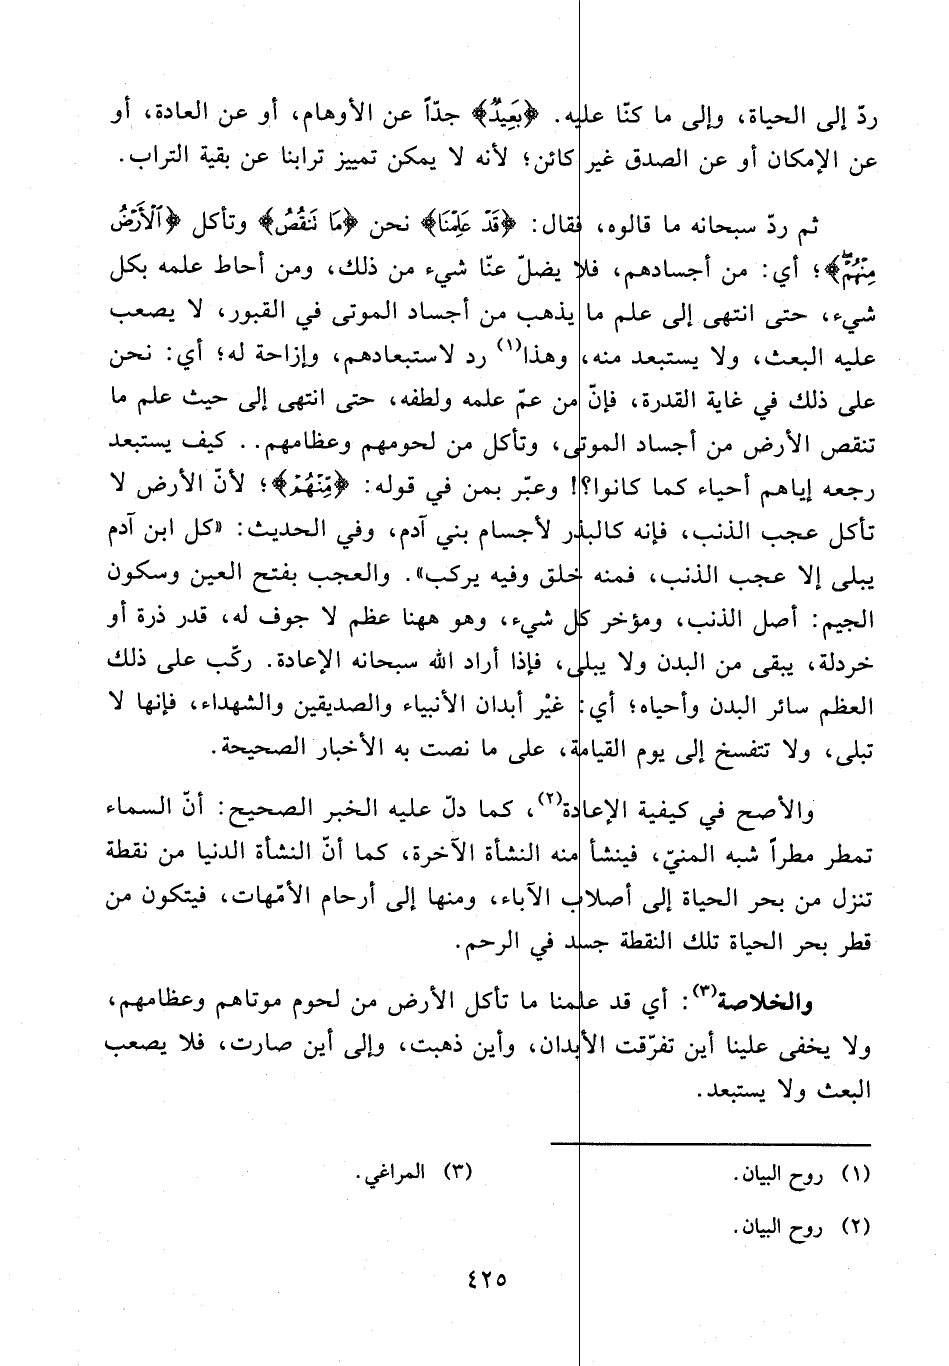 ردّ إلى الحياة، وإلى ما كنّا عليه. ﴿بَعِيدٌ﴾ جدّاً عن الأوهام، أو عن العادة، أو
عن الإمكان أو عن الصدق غير كائن؛ لأنه لا يمكن تمييز ترابنا عن بقية التراب.
ثم ردّ سبحانه ما قالوه، فقال: ﴿قَدْ عَلِمْنَا﴾ نحن ﴿مَا نَنقُصُ﴾ وتأكل ﴿ٱلْأَرْضُ
مِنْهُمْ﴾؛ أي: من أجسادهم، فلا يضلّ عنّا شيء من ذلك، ومن أحاط علمه بكل
شيء، حتى انتهى إلى علم ما يذهب من أجساد الموتى في القبور، لا يصعب
عليه البعث، ولا يستبعد منه، وهذا(١) رد لاستبعادهم، وإزاحة له؛ أي: نحن
على ذلك في غاية القدرة، فإنّ من عمّ علمه ولطفه، حتى انتهى إلى حيث علم ما
تنقص الأرض من أجساد الموتى، وتأكل من لحومهم وعظامهم.. كيف يستبعد
رجعه إياهم أحياء كما كانوا؟! وعبّر بمن في قوله: ﴿مِنْهُمْ﴾؛ لأنّ الأرض لا
تأكل عجب الذنب، فإنه كالبذر لأجسام بني آدم، وفي الحديث: «كل ابن آدم
يبلى إلا عجب الذنب، فمنه خلق وفيه يركب». والعجب بفتح العين وسكون
الجيم: أصل الذنب، ومؤخر كل شيء، وهو ههنا عظم لا جوف له، قدر ذرة أو
خردلة، يبقى من البدن ولا يبلى، فإذا أراد الله سبحانه الإعادة. ركّب على ذلك
العظم سائر البدن وأحياه؛ أي: غيْر أبدان الأنبياء والصديقين والشهداء، فإنها لا
تبلى، ولا تتفسخ إلى يوم القيامة، على ما نصت به الأخبار الصحيحة.
والأصح في كيفية الإعادة(٢)، كما دلّ عليه الخبر الصحيح: أنّ السماء
تمطر مطراً شبه المنيّ، فينشأ منه النشأة الآخرة، كما أنّ النشأة الدنيا من نقطة
تنزل من بحر الحياة إلى أصلاب الآباء، ومنها إلى أرحام الأمّهات، فيتكون من
قطر بحر الحياة تلك النقطة جسد في الرحم.
والخلاصة(٣): أي قد علمنا ما تأكل الأرض من لحوم موتاهم وعظامهم،
ولا يخفى علينا أين تفرّقت الأبدان، وأين ذهبت، وإلى أين صارت، فلا يصعب
البعث ولا يستبعد.
(١) روح البيان.
(٢) روح البيان.
(٣) المراغي.
٤٢٥